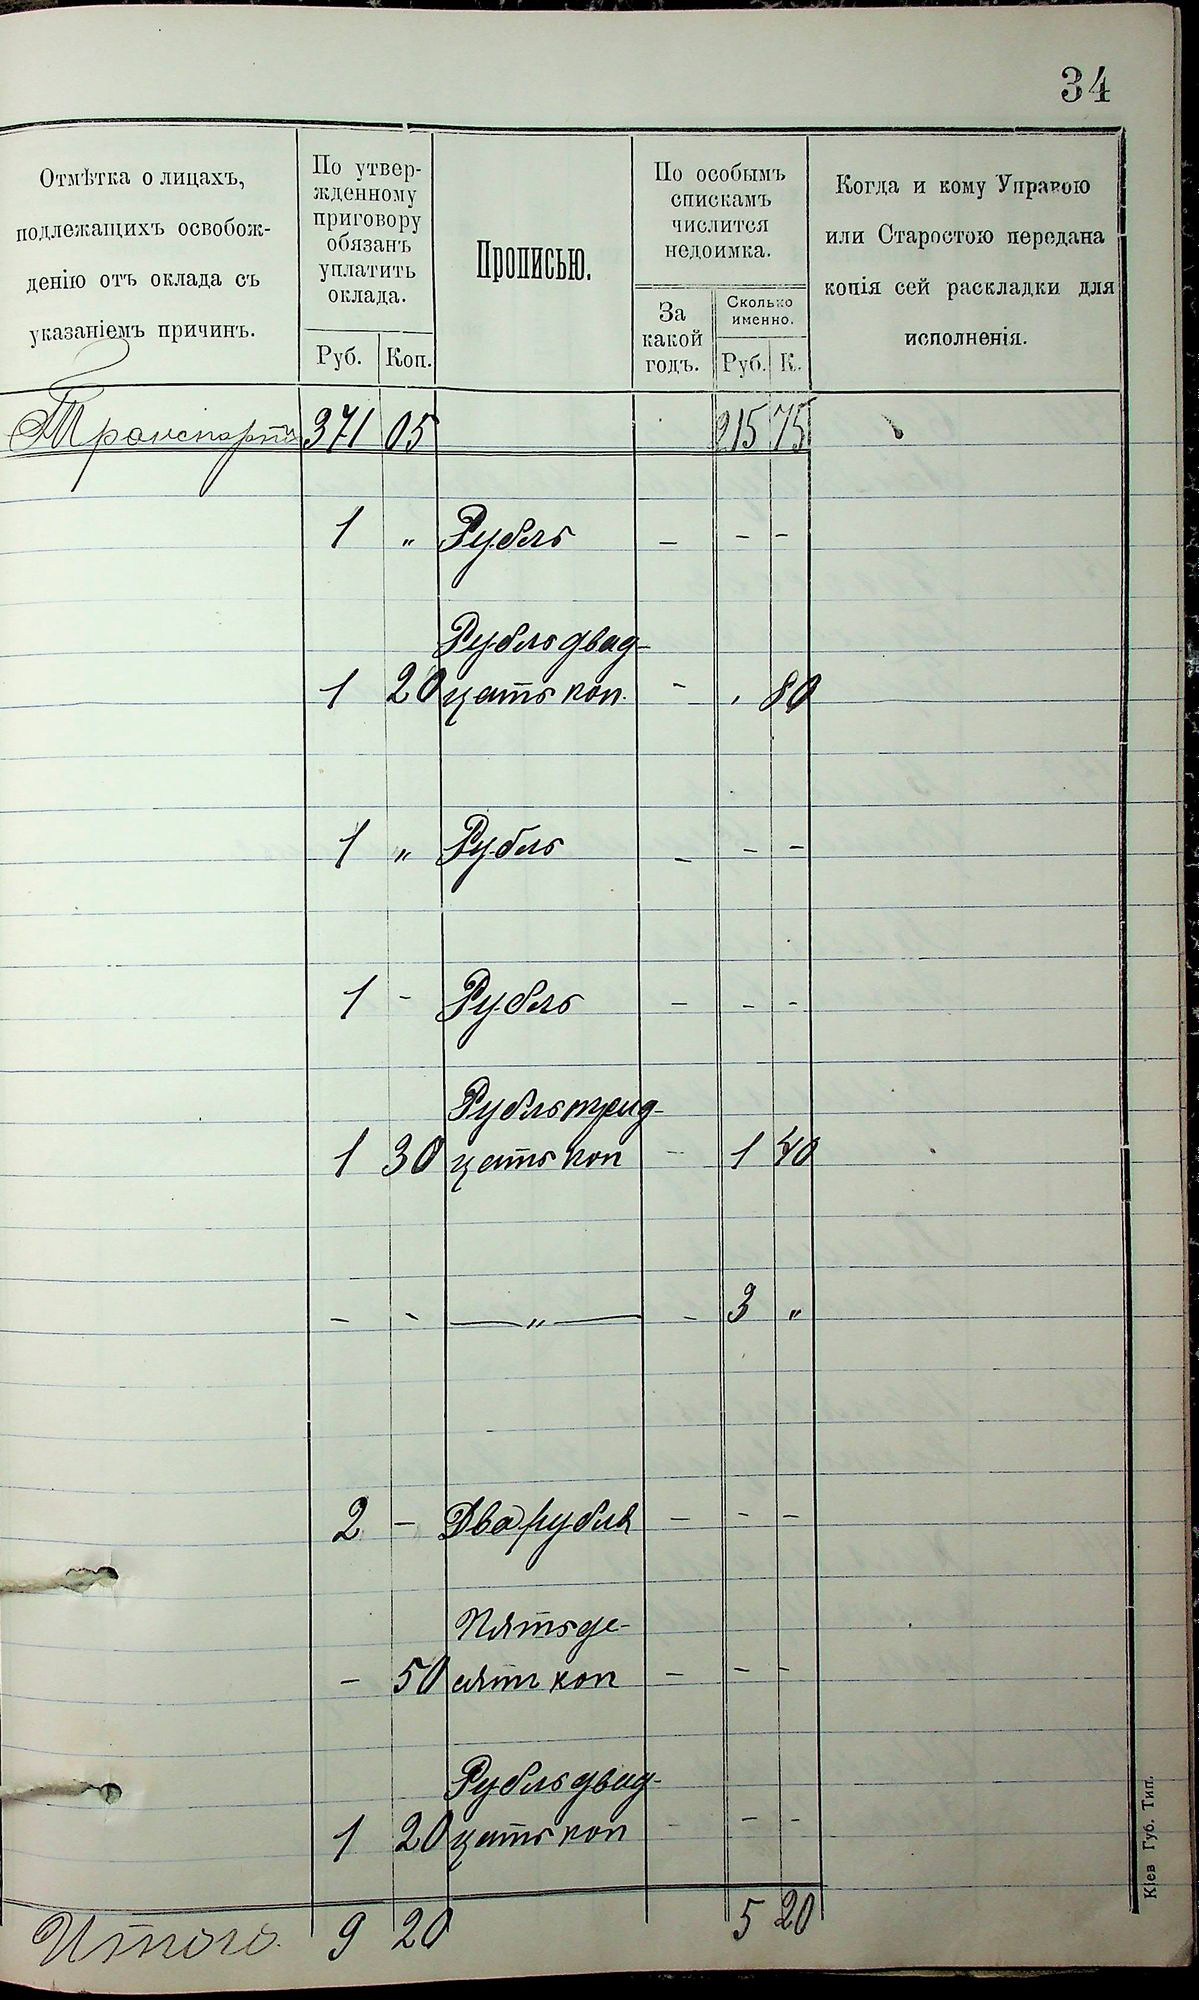 34
Отмѣтка о лицахъ,
подлежащихъ освобож-
денію отъ оклада съ
указаніемъ причинъ.
По утвер-
жденному
приговору
обязанъ
уплатить
оклада.
Руб. Коп.
Прописью.
По особымъ
спискамъ
числится
недоимка.
За
какой
годъ.
Сколько
именно.
Руб. К.
Когда и кому Управою
или Старостою передана
копія сей раскладки для
исполненія.
Транспортъ 371 05 215 75
1 „ Рубль – – –
Рубль двад-
1 20 цать коп. – , 80
1 „ Рубль – – –
1 – Рубль – – –
Рубль трид-
1 30 цать коп – 1 40
– – —„— – 3 „
2 – Два рубля – – –
Пятьде-
– 50 сят коп – – –
Рубль двад-
1 20 цать коп – – –
Итого. 9 20 5 20
Кіев Губ. Тип.